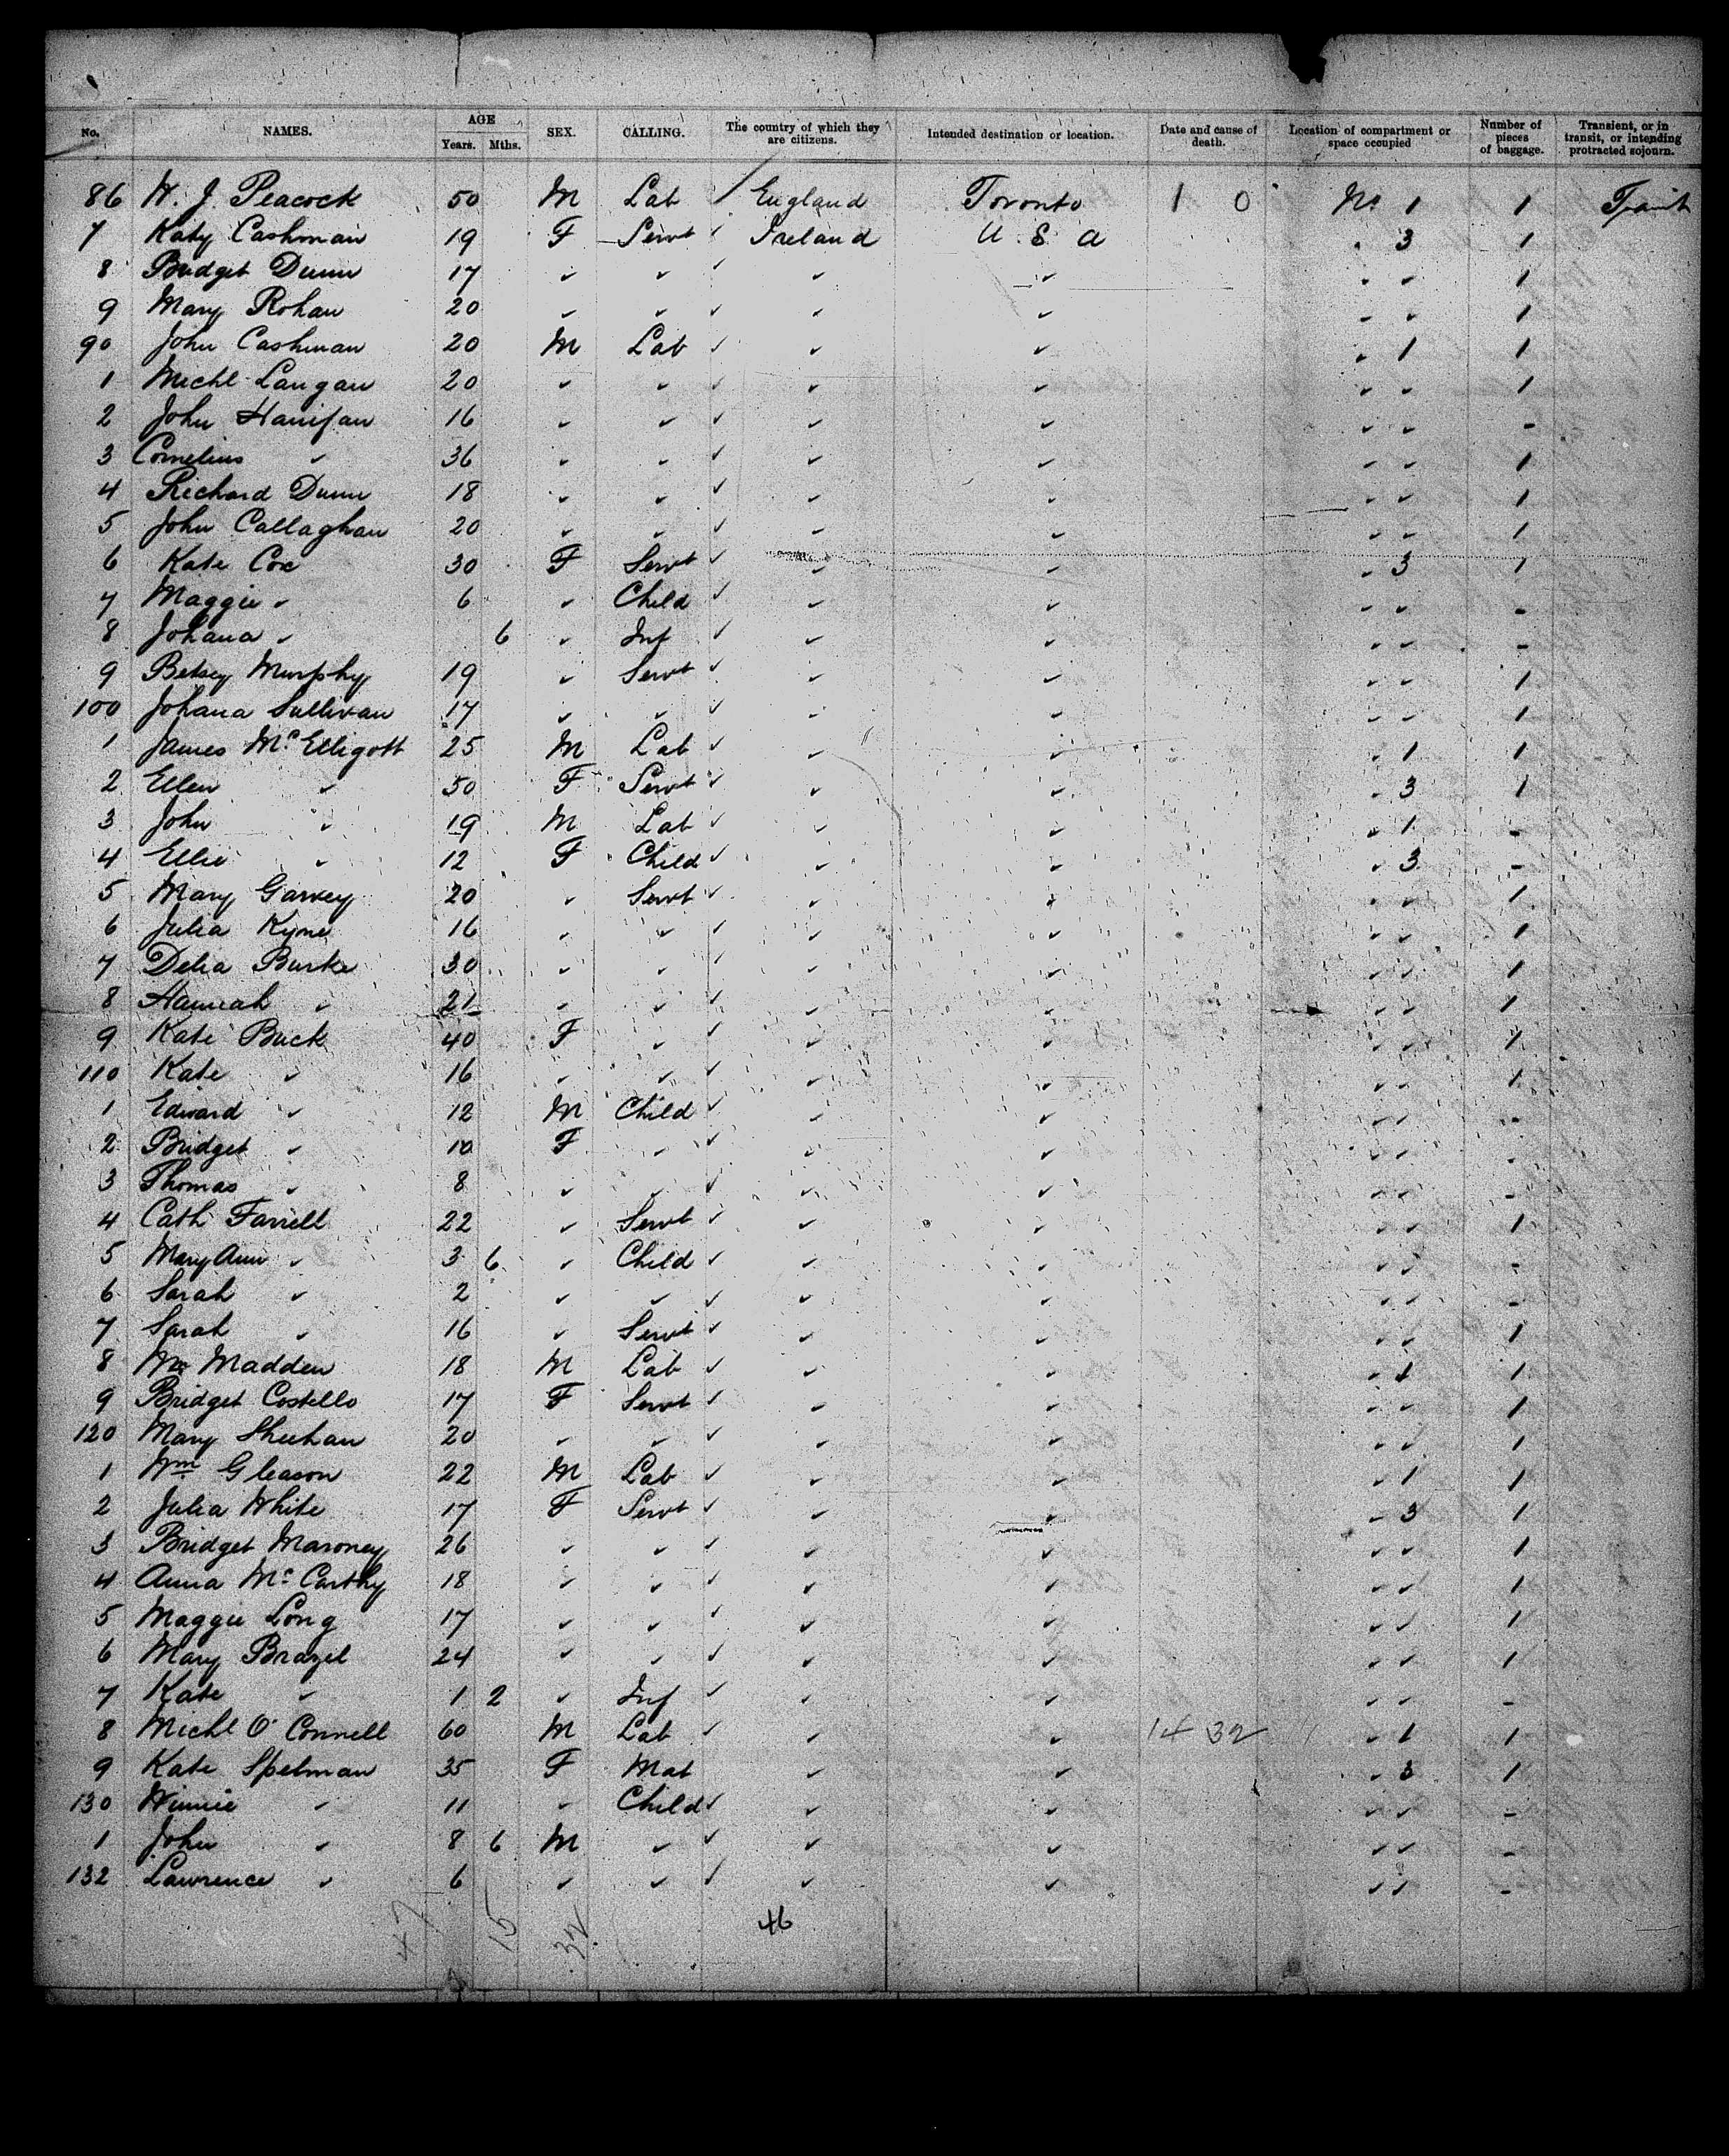 No. NAMES. AGE Years. Mths. SEX. CALLING. The country of which they are citizens. Intended destination or location. Date and cause of death. Location of compartment or space occupied Number of pieces of baggage. Transient, or in transit, or intending protracted sojourn.
86 W. J. Peacock 50 M Lab ✓ England Toronto 1 0 No 1 1 Transit
7 Katy Cashman 19 F Servt ✓ Ireland U. S. A 3 1
8 Bridget Dunn 17 ✓ ✓ ✓ ✓ ✓ ✓ ✓ 1
9 Mary Rohan 20 ✓ ✓ ✓ ✓ ✓ ✓ ✓ 1
90 John Cashman 20 M Lab ✓ ✓ ✓ ✓ 1 1
1 Michl Langan 20 ✓ ✓ ✓ ✓ ✓ ✓ ✓ 1
2 John Hanifan 16 ✓ ✓ ✓ ✓ ✓ ✓ ✓ -
3 Cornelius ✓ 36 ✓ ✓ ✓ ✓ ✓ ✓ ✓ 1
4 Richard Dunn 18 ✓ ✓ ✓ ✓ ✓ ✓ ✓ 1
5 John Callaghan 20 ✓ ✓ ✓ ✓ ✓ ✓ ✓ 1
6 Kate Cox 30 F Servt ✓ ✓ ✓ ✓ 3 1
7 Maggie ✓ 6 ✓ Child ✓ ✓ ✓ ✓ ✓ -
8 Johana ✓ 6 ✓ Inf ✓ ✓ ✓ ✓ ✓ -
9 Betsey Murphy 19 ✓ Servt ✓ ✓ ✓ ✓ ✓ 1
100 Johana Sullivan 17 ✓ ✓ ✓ ✓ ✓ ✓ ✓ 1
1 James McElligott 25 M Lab ✓ ✓ ✓ ✓ 1 1
2 Ellen ✓ 50 F Servt ✓ ✓ ✓ ✓ 3 1
3 John ✓ 19 M Lab ✓ ✓ ✓ ✓ 1 -
4 Ellie ✓ 12 F Child ✓ ✓ ✓ ✓ 3 -
5 Mary Garvey 20 ✓ Servt ✓ ✓ ✓ ✓ ✓ 1
6 Julia Kyne 16 ✓ ✓ ✓ ✓ ✓ ✓ ✓ 1
7 Delia Burke 30 ✓ ✓ ✓ ✓ ✓ ✓ ✓ 1
8 Hannah ✓ 21 ✓ ✓ ✓ ✓ ✓ ✓ ✓ 1
9 Kate Buck 40 F ✓ ✓ ✓ ✓ ✓ ✓ 1
110 Kate ✓ 16 ✓ ✓ ✓ ✓ ✓ ✓ ✓ 1
1 Edward ✓ 12 M Child ✓ ✓ ✓ ✓ ✓ -
2 Bridget ✓ 10 F ✓ ✓ ✓ ✓ ✓ ✓ -
3 Thomas ✓ 8 ✓ ✓ ✓ ✓ ✓ ✓ ✓ -
4 Cath Farrell 22 ✓ Servt ✓ ✓ ✓ ✓ ✓ 1
5 Mary Ann ✓ 3 6 ✓ Child ✓ ✓ ✓ ✓ ✓ -
6 Sarah ✓ 2 ✓ ✓ ✓ ✓ ✓ ✓ ✓ -
7 Sarah ✓ 16 ✓ Servt ✓ ✓ ✓ ✓ ✓ 1
8 Wm Madden 18 M Lab ✓ ✓ ✓ ✓ 1 1
9 Bridget Costello 17 F Servt ✓ ✓ ✓ ✓ ✓ 1
120 Mary Sheehan 20 ✓ ✓ ✓ ✓ ✓ ✓ ✓ 1
1 Wm Gleason 22 M Lab ✓ ✓ ✓ ✓ 1 1
2 Julia White 17 F Servt ✓ ✓ ✓ ✓ 3 1
3 Bridget Maroney 26 ✓ ✓ ✓ ✓ ✓ ✓ ✓ 1
4 Anna McCarthy 18 ✓ ✓ ✓ ✓ ✓ ✓ ✓ 1
5 Maggie Long 17 ✓ ✓ ✓ ✓ ✓ ✓ ✓ 1
6 Mary Brazel 24 ✓ ✓ ✓ ✓ ✓ ✓ ✓ 1
7 Kate ✓ 1 2 ✓ Inf ✓ ✓ ✓ ✓ ✓ -
8 Michl O'Connell 60 M Lab ✓ ✓ ✓ 14 32 ✓ 1 1
9 Kate Spelman 35 F Mat ✓ ✓ ✓ 3 1
130 Winnie ✓ 11 ✓ Child ✓ ✓ ✓ ✓ ✓ -
1 John ✓ 8 6 M ✓ ✓ ✓ ✓ ✓ ✓ -
132 Lawrence ✓ 6 ✓ ✓ ✓ ✓ ✓ ✓ ✓ -
47 15 32 46